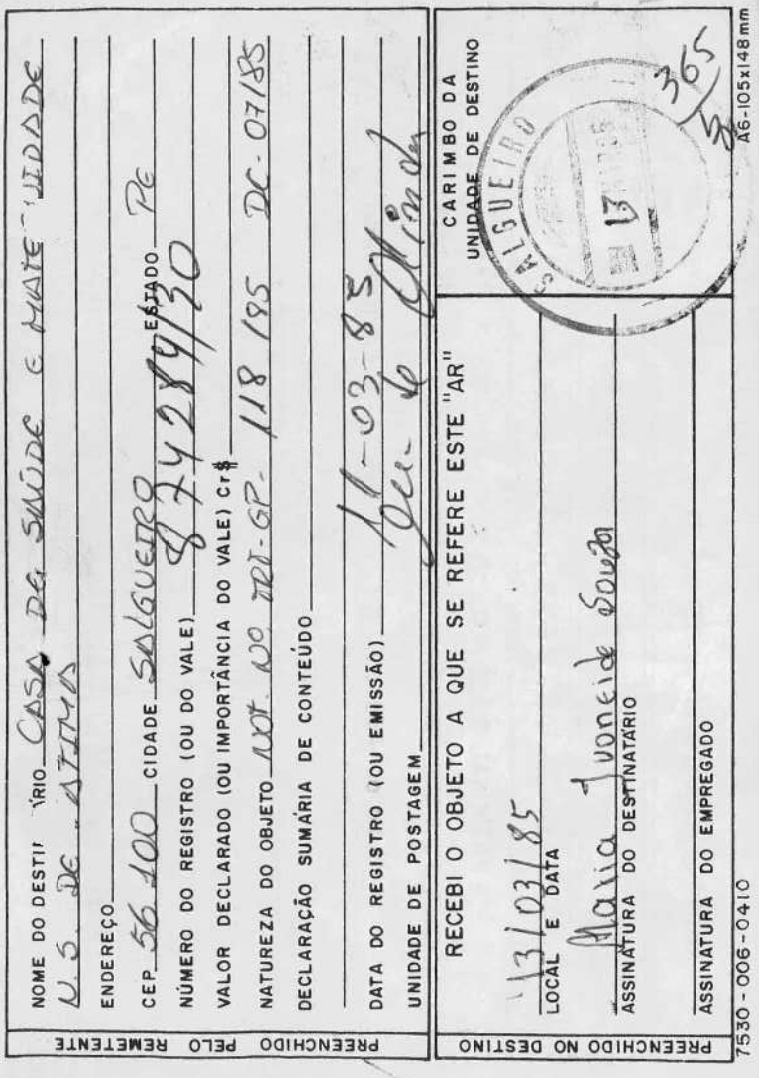 PREENCHIDO PELO REMETENTE
NOME DO DESTI ÁRIO CASA DE SAÚDE E MATE IDADE
N. S. DE ÁTIMA
ENDEREÇO
CEP 56.100 CIDADE SALGUEIRO ESTADO PE
NÚMERO DO REGISTRO (OU DO VALE) 874289/30
VALOR DECLARADO (OU IMPORTÂNCIA DO VALE) Cr$
NATUREZA DO OBJETO NOT. Nº TRT-GP- 118/85 DC-07/85
DECLARAÇÃO SUMÁRIA DE CONTEÚDO
DATA DO REGISTRO (OU EMISSÃO) 11-03-85
UNIDADE DE POSTAGEM
PREENCHIDO NO DESTINO
RECEBI O OBJETO A QUE SE REFERE ESTE "AR"
13/03/85
LOCAL E DATA
Maria Ivoneide Souza
ASSINATURA DO DESTINATÁRIO
ASSINATURA DO EMPREGADO
CARIMBO DA
UNIDADE DE DESTINO
SALGUEIRO
13
365
7530-006-0410
A6-105x148mm